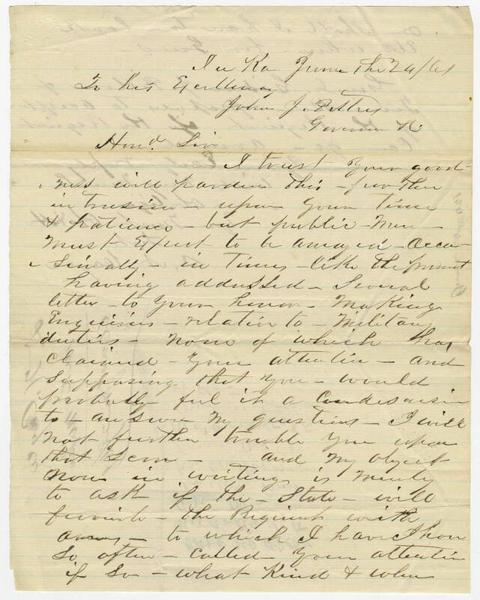 Iu Ka June the 24/61
To his Excellency
John J. Pettus
Governor
Hond. Sir
I trust your good-
ness will pardon this - further
intrusion - upon your time
& patience - but public Men -
Must Expect to be annoyed - occa-
sinally - in times - like the present
having addressed - several
letter to your honor - Making
Enquiries - relative to - Military
duties - none of which has
claimed - your attention - and
supposing that you - would
probably feel it a condescension
to - answer my questions - I will
not further trouble you upon
that Score - and My object
now in writing is merely
to ask if the - State - will
furnish - the Regiment with
arms - to which I have thon
so often - called your attention
if so - what Kind & when